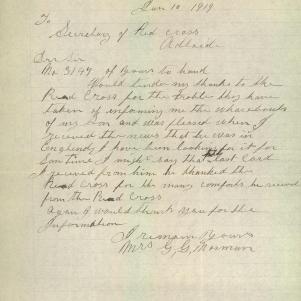 Jan 10 1919
To
Secretary of Red Cross
Adlaide
Dr Sir
No 3147 of yours to hand
Would tender my thanks to the
Read Cross for the troble they have
taken of informing me the whearbouts
of my Son and was pleased when I
receved the news that he was in
England I have been looking for it for
Som time I migh say that last Card
I receved from him he thanked the
Read Cross for the many comforts he receved
from the Read Cross
again I would thank you for the
Information
I remain Yours
Mrs G. G.